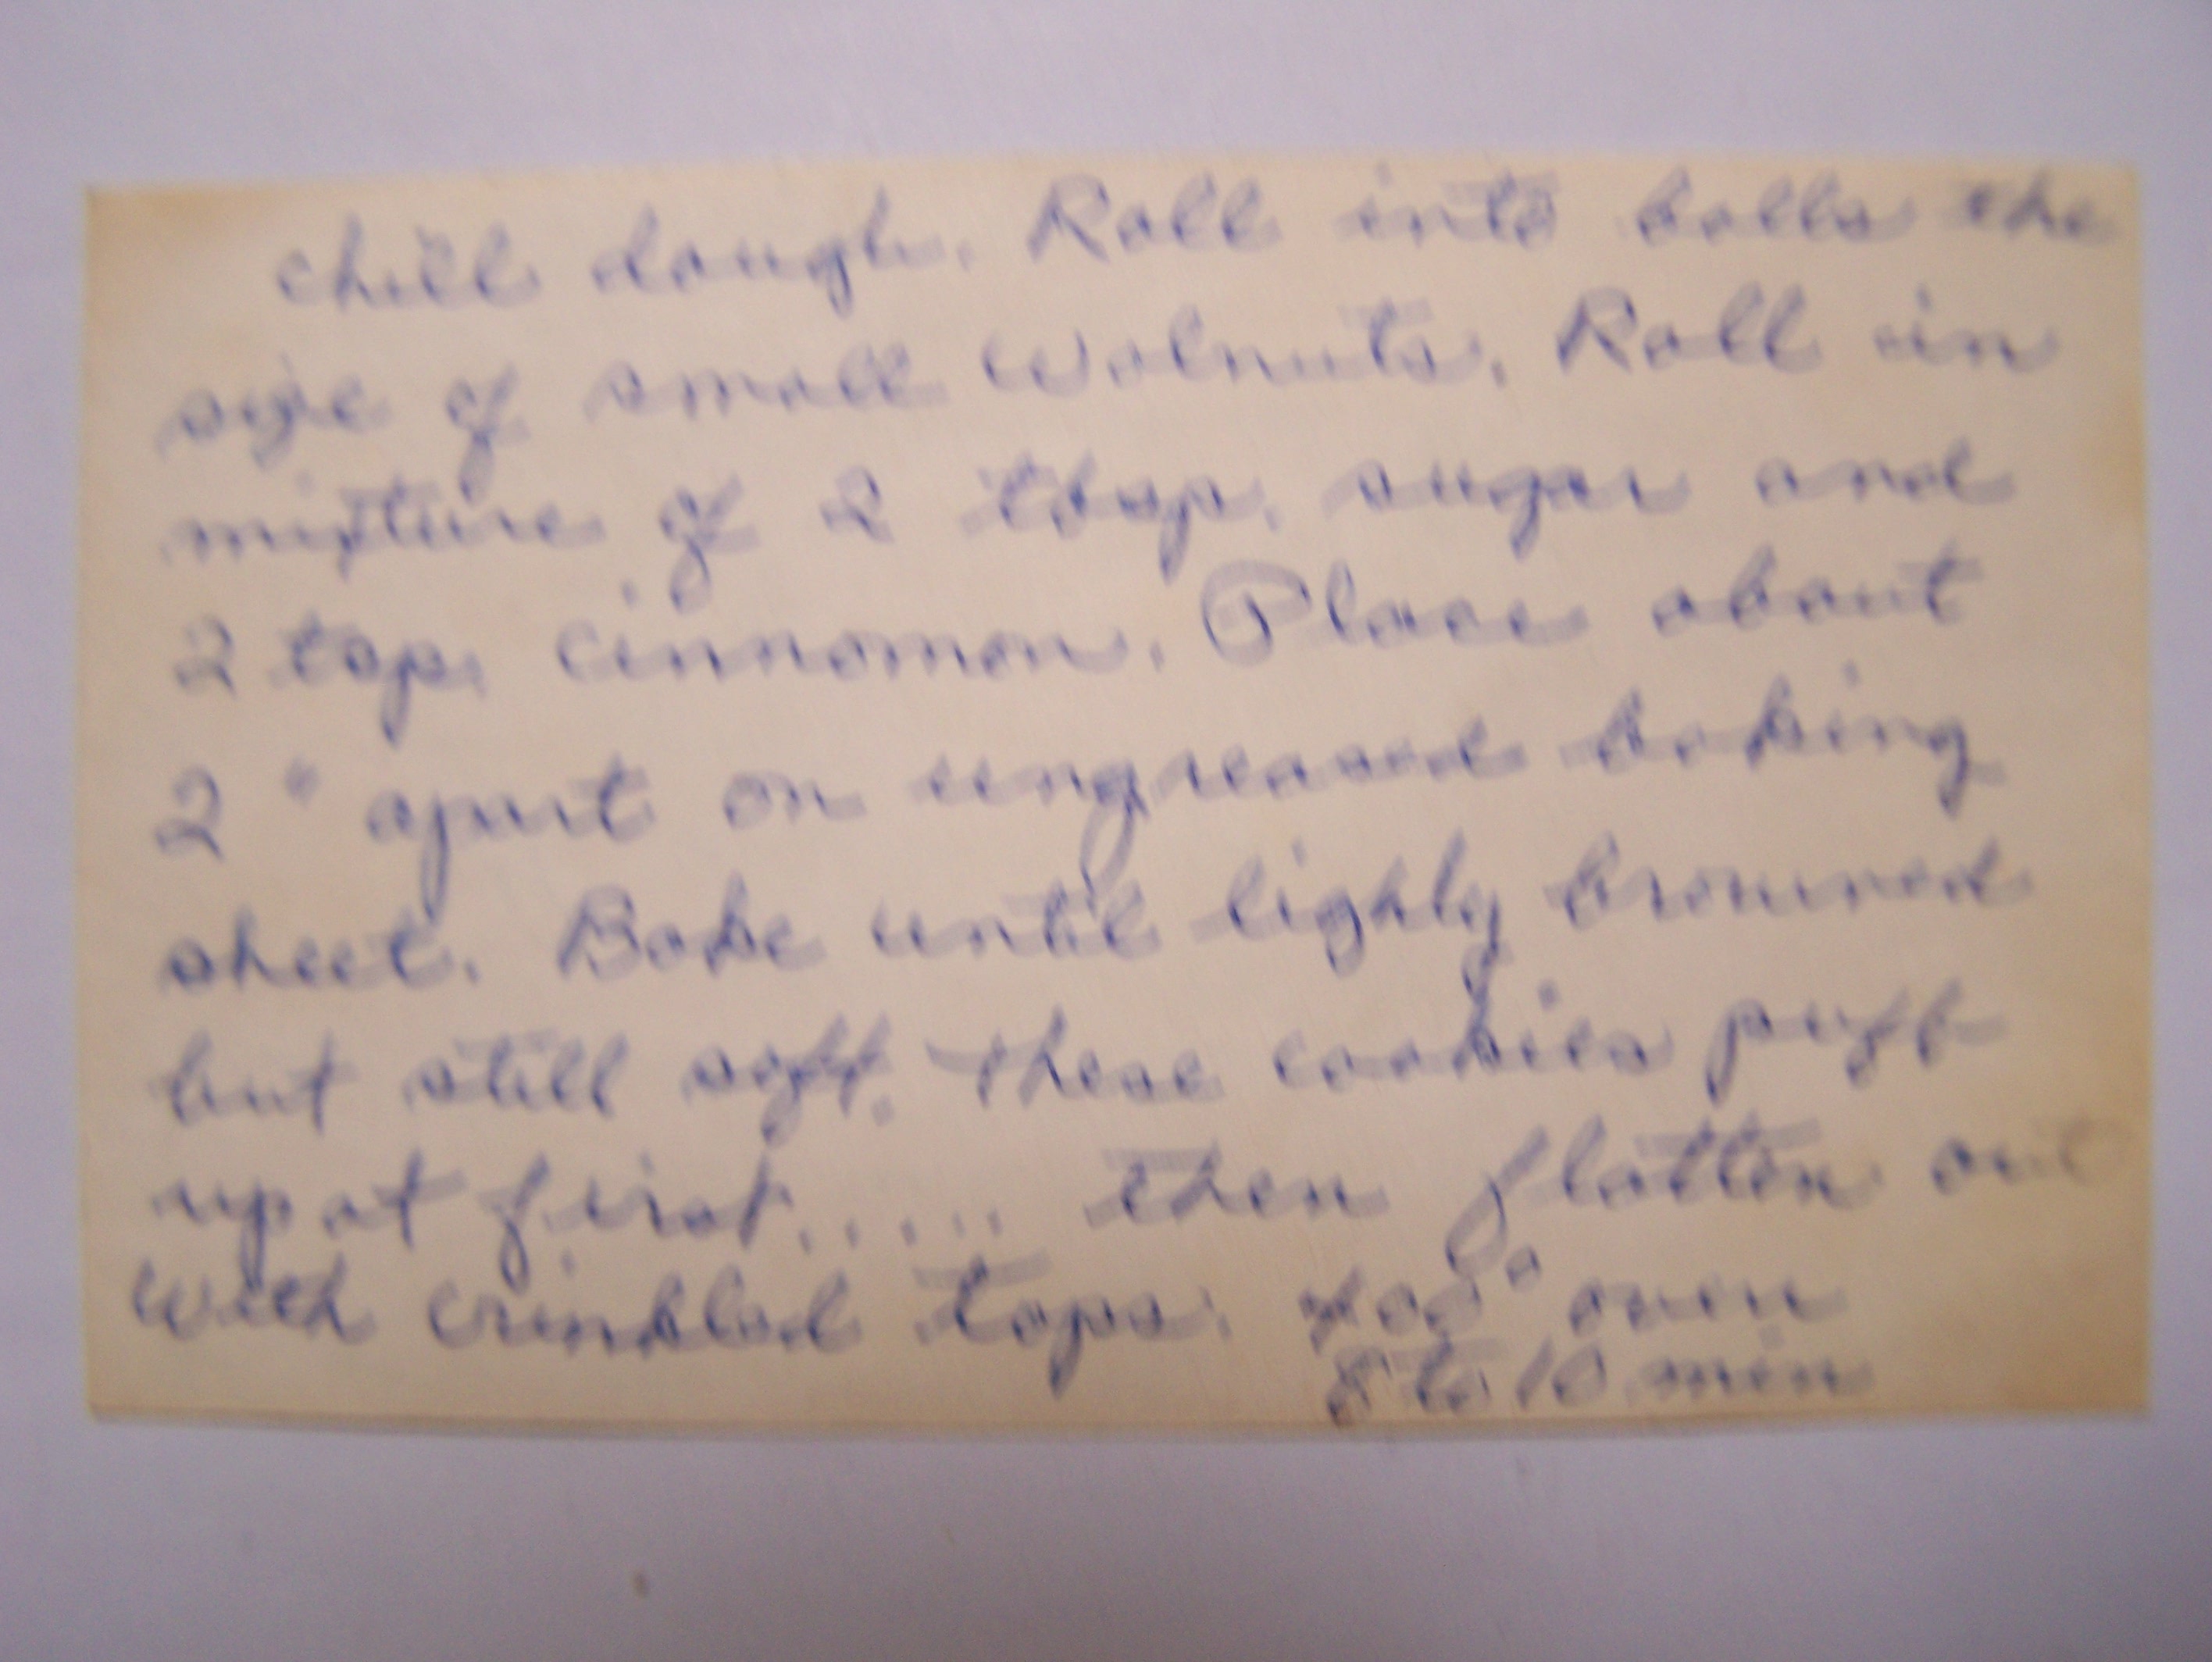 chill dough. Roll into balls the
size of small Walnuts. Roll in
mixture of 2 tbsp. sugar and
2 tsp. cinnamon. Place about
2" apart on ungreased baking
sheet. Bake until lighly browned
but still soft. These cookies puff
up at first..... then flatten out
With crinkled tops. 400° oven
8 to 10 min